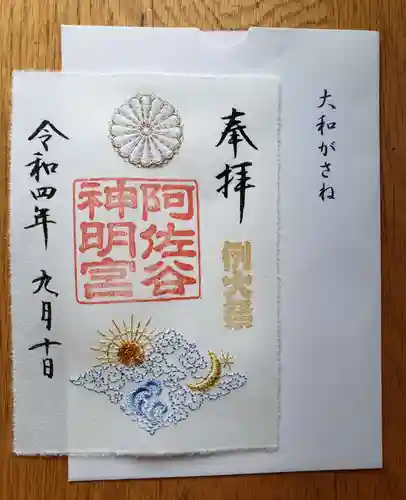 大和がさね
奉拝
例大祭
阿佐谷
神明宮
令和四年 九月十日